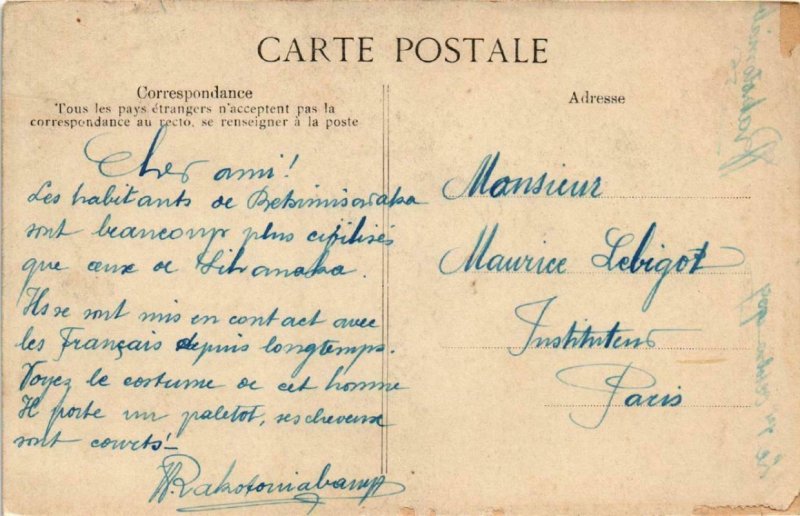 CARTE POSTALE
Correspondance
Tous les pays étrangers n'acceptent pas la
correspondance au recto, se renseigner à la poste
Adresse
Cher ami!
Les habitants de Betsimisaraka
sont beaucoup plus civilisés
que ceux de Sihanaka.
Ils se sont mis en contact avec
les Français depuis longtemps.
Voyez le costume de cet homme
Il porte un paletot, ses cheveux
sont courts!
Monsieur
Maurice Lebigot
Instituteur
Paris